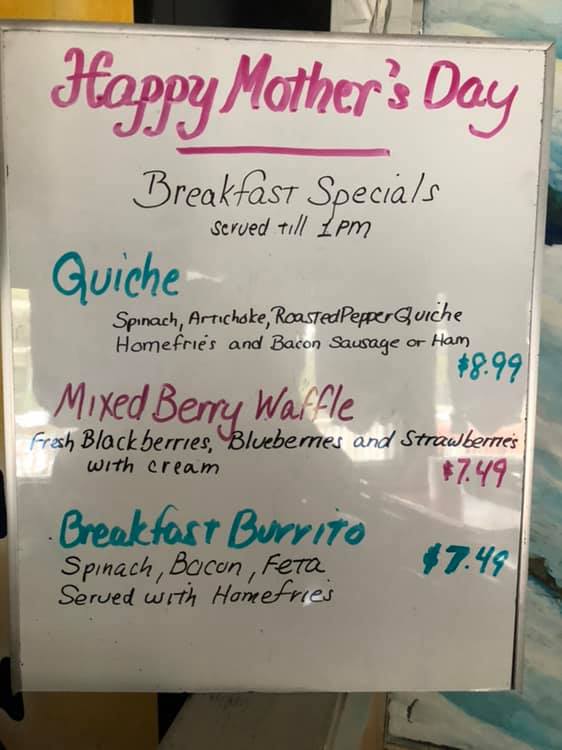 Happy Mother's Day
Breakfast Specials
served till 1PM
Quiche
Spinach, Artichoke, Roasted Pepper Quiche
Homefrie's and Bacon Sausage or Ham
$8.99
Mixed Berry Waffle
Fresh Blackberries, Blueberries and Strawberries
with cream
$7.49
Breakfast Burrito
Spinach, Bacon, Feta
$7.49
Served with Homefries